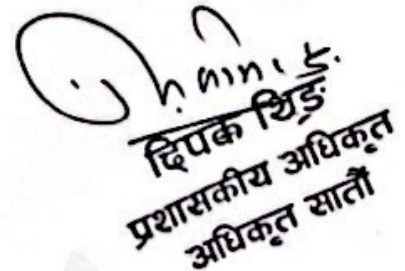 दिपक थिङ
प्रशासकीय अधिकृत
अधिकृत सातौं